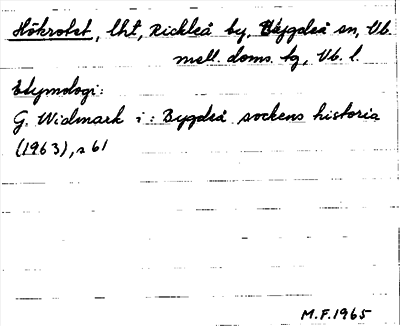 Hökrotet, lht, Rickleå by, Bygdeå sn, Vb.
mell. doms. tg, Vb. l.
Etymologi:
G. Widmark i: Bygdeå sockens historia
(1963), s 61
M.F. 1965